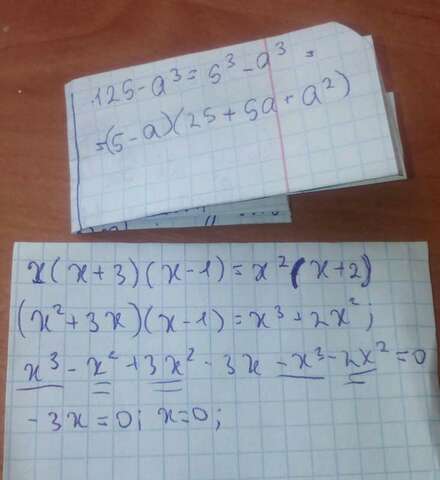 125-a³=5³-a³=
=(5-a)(25+5a+a²)
x(x+3)(x-1)=x²(x+2)
(x²+3x)(x-1)=x³+2x²;
x³-x²+3x²-3x-x³-2x²=0
-3x=0; x=0;